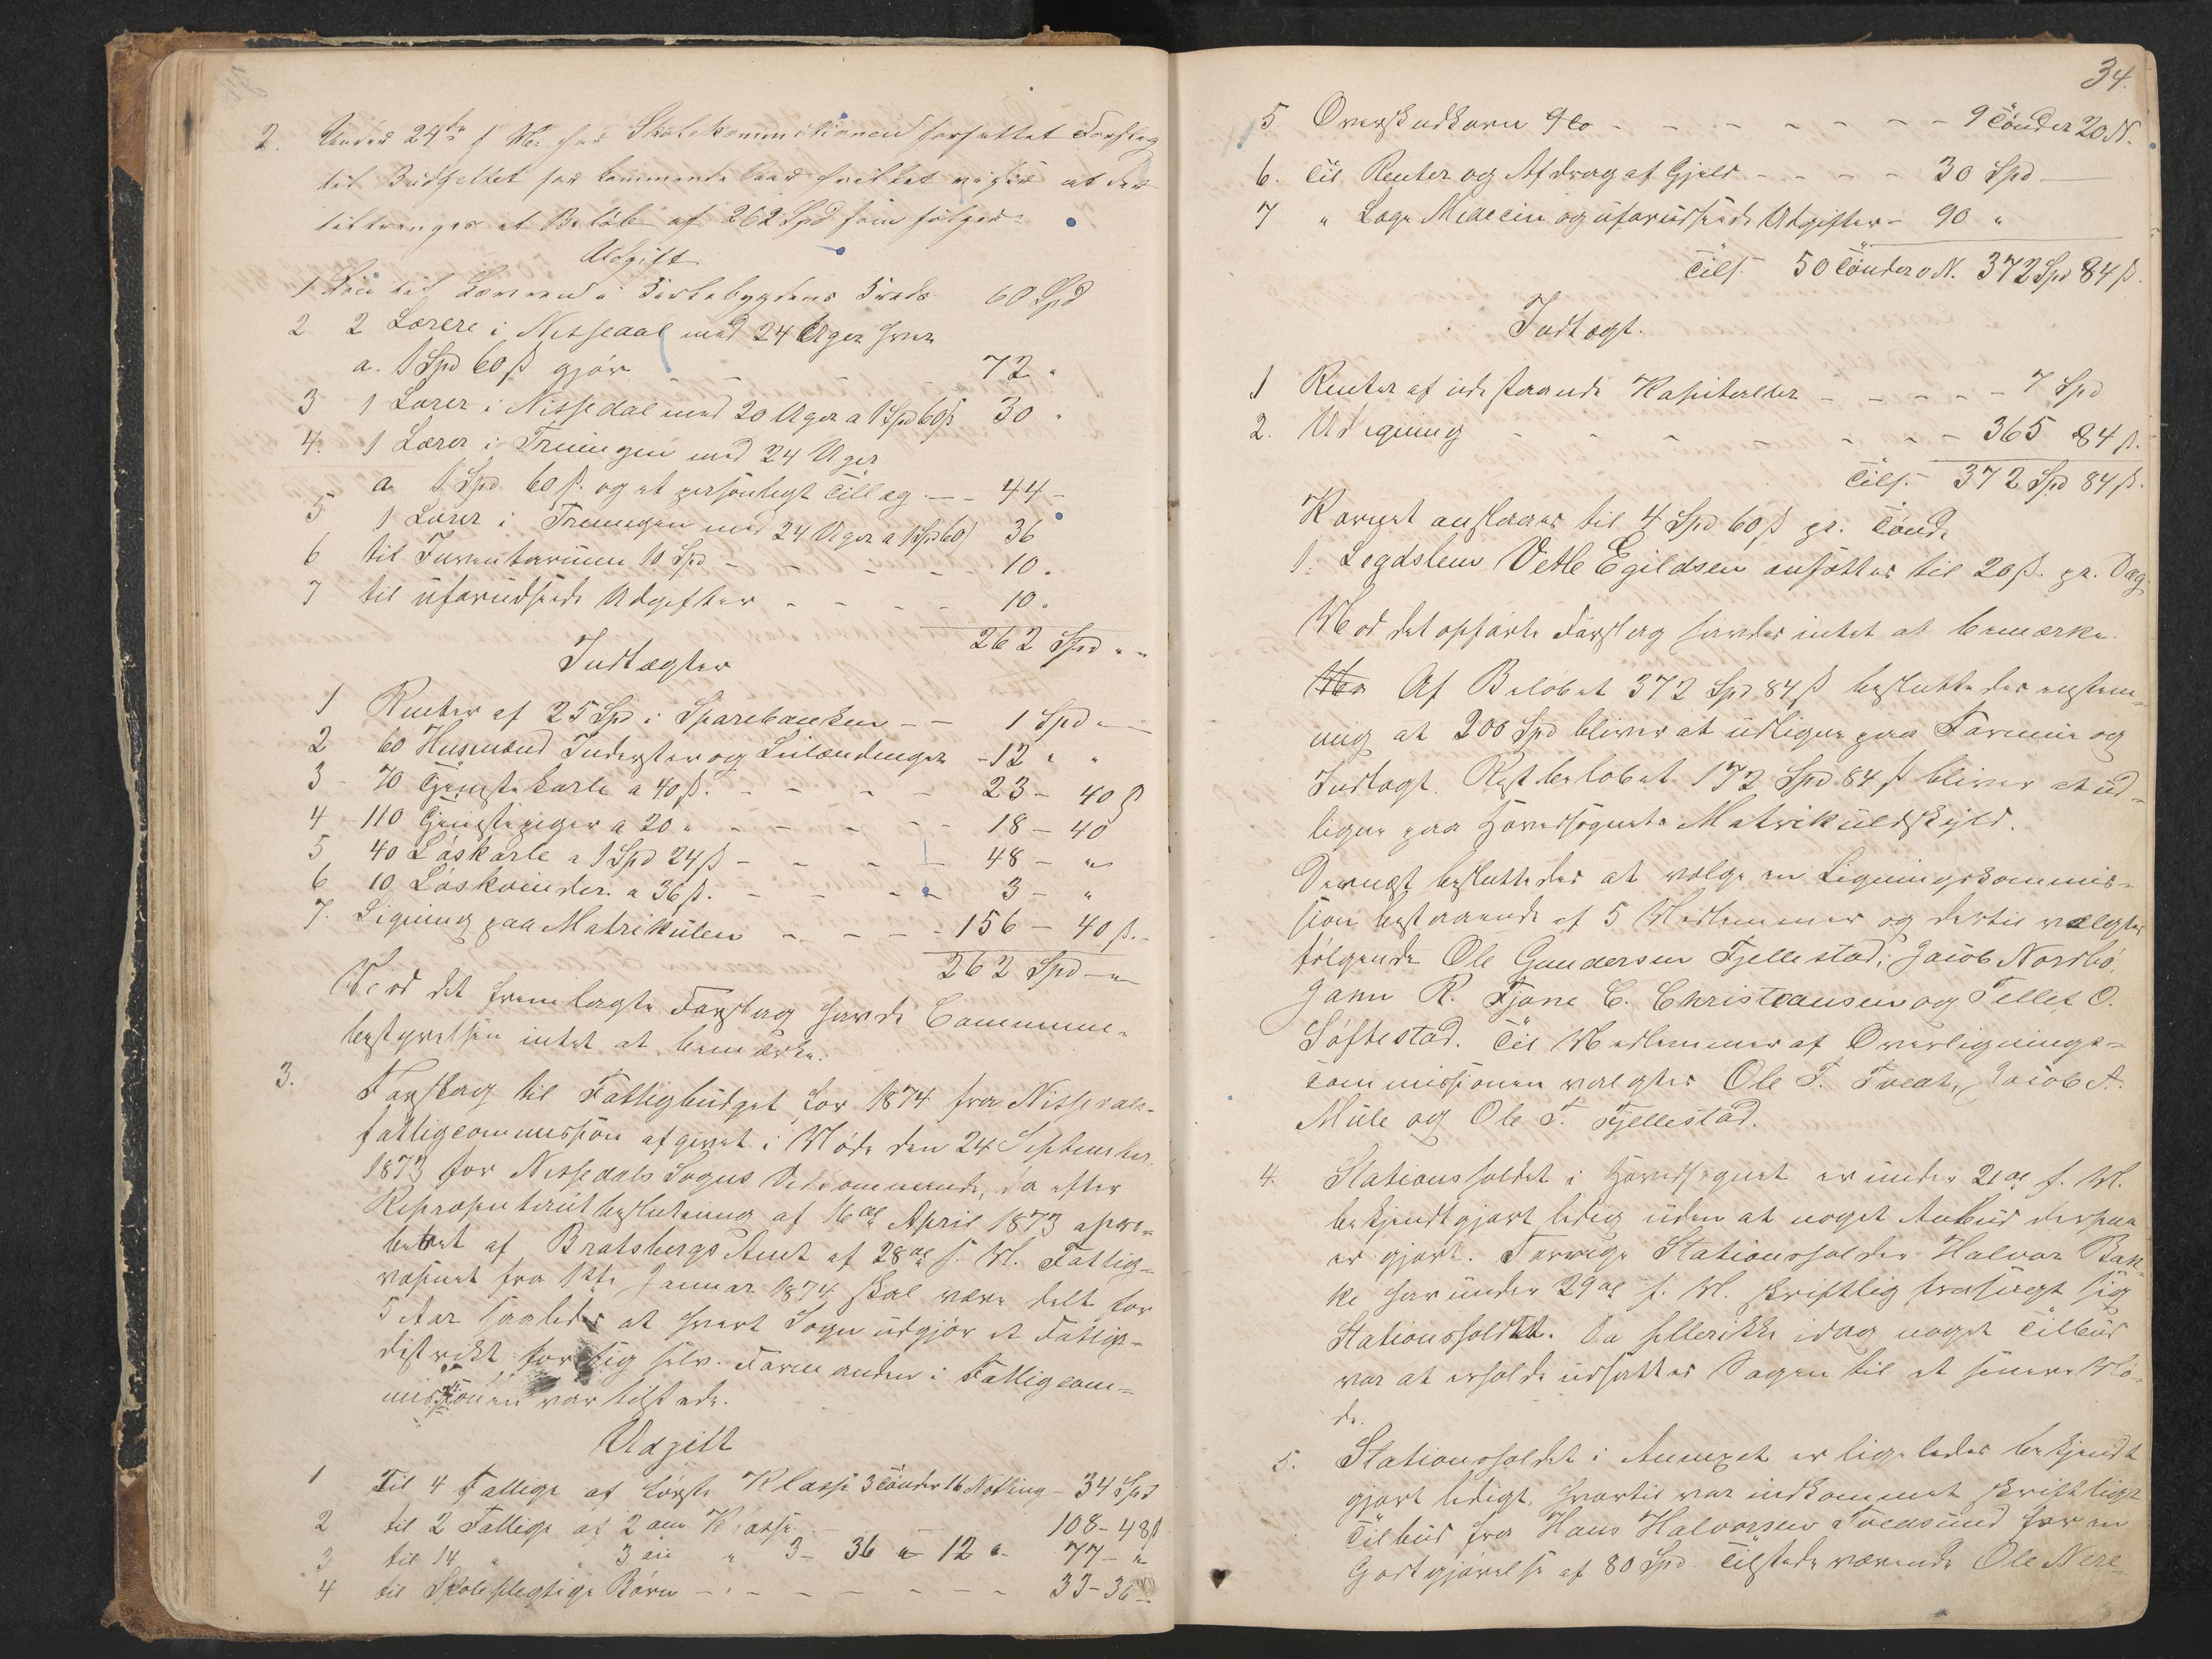 2. Under 24de f. M. har Skolekommissionen forfattet Forslag
til Budgettet for kommende Aar hvilket viser at der
tiltrenges et Beløb af 262 Spd som følger:
Udgift
1 Løn til Læreren i Kreds 60 Spd
2 2 Lærere i Nissedal med 24 Uger hver
a. 1 Spd 60 ß gjør - - - 72 "
3 1 Lærer i Nissedal med 20 Uger a 1 Spd 60 ß 30 "
4. 1 Lærer i Treungen med 24 Uger
a 1 Spd 60 ß. og et personligt Tillæg - - 44 -
5 1 Lærer i Treungen med 24 Uger a 1 Spd 60 ß 36
6 til Inventarium 10 Spd - - - - 10 "
7 til uforudseede Udgifter - - - - 10 "
262 Spd " "
Indtægter
1 Renter af 25 Spd i Sparebanken - - 1 Spd " -
2 60 Husmænd Inderster og - 12 " "
3 - 70 Tjenestekarle a 40 ß. - - - - 23 - 40 ß
4 - 110 Tjenestepiger a 20 " - - - - 18 - 40
5 40 Løskarle a 1 Spd 24 ß - - - - 48 - "
6 10 Løskvinder a 36 ß. - - - - 3 - "
7. Ligning paa Matrikulen - - - - 156 - 40 ß. -
262 Spd - "
Mod det fremlagte Forslag havde Commune-
bestyrelsen intet at bemærke.
3. Forslag til Fattigbudget for 1874 fra Nissedals
fattigcommission afgivet i Møde den 24 September
1873 for Nissedals Sogns Vedkommende, da efter
Repræsentantbeslutning af 16de April 1873 appro-
beret af Bratsbergs Amt af 28de f. M. Fattig-
væsenet fra 1ste Januar 1874 skal være delt for
5 Aar saaledes at hvert Sogn udgjør et Fattig-
distrikt for sig selv. Formanden i Fattigcom-
missionen var tilstede.
Udgift
1 Til 4 Fattige af første Klasse 3 Tønder 16 Notting - 34 Spd
2 til 2 Fattige af 2den Klasse - - 108 - 48 ß
3 til 14 " " 3die " 3 - 36 " 12 " 77 - "
4 til Skolepligtige Børn - - - - - - - - 33 - 36
34.
5. Overskudkorn - - - - - - - - - 9 Tønder 20 N.
6. Til Renter og Afdrag af Gjeld - - - - 30 Spd -
7 " Læge Medecin og uforudseede Udgifter - 90 "
Tils. 50 Tønder 0 N. 372 Spd 84 ß.
Indtægt.
1 Renter af udestaaende Kapitaler - - - - - 7 Spd
2. Udligning - - - - - - - - 365 84 ß.
Tils. - 372 Spd 84 ß.
Kornet anslaaes til 4 Spd 60 ß pr. Tønde
1. Lægdslem Vetle Egildsen ansættes til 20 ß. pr. Dag
Mod det opførte Forslag havdes intet at bemærke.
Af Beløbet 372 Spd 84 ß besluttedes enstem-
mig at 200 Spd bliver at udligne paa Formue og
Indtægt. Restbeløbet 172 Spd 84 ß bliver at ud-
ligne paa Hovedsognets Matrikulskyld.
Dernæst besluttedes at vælge en Ligningskommis-
sion bestaaende af 5 Medlemmer og dertil valgtes
følgende Ole Gundersen Fjellestad, Jacob Nordbø,
Jønn R. Fjone C. Christeansen og Tellef O.
Søftestad. Til Medlemmer af Overlignings-
commissionen valgtes Ole T. Tveat, Jacob A.
Mule og Ole T. Fjellestad.
4. Stationsholdet i Hovedsognet er under 21de f. M.
bekjendtgjort ledig uden at noget Anbud derpaa
er gjort. Forrige Stationsholder Halvor Bak-
ke har under 29de f. M. skriftlig frasagt sig
Stationsholdet. Da hellerikke idag noget Tilbud
var at erholde udsættes Sagen til et senere Mø-
de.
5. Stationsholdet i Annexet er ligeledes bekjendt
gjort ledigt, hvortil var indkommet skriftligt
Tilbud fra Hans Halvorsen Tveasund for en
Godtgjørelse af 80 Spd. Tilstedeværende Ole Nere-